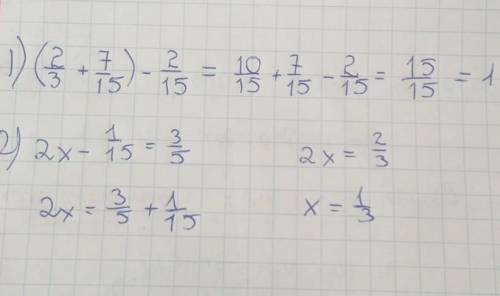 1) (2/3 + 7/15) - 2/15 = 10/15 + 7/15 - 2/15 = 15/15 = 1
2) 2x - 1/15 = 3/5
2x = 3/5 + 1/15
2x = 2/3
x = 1/3